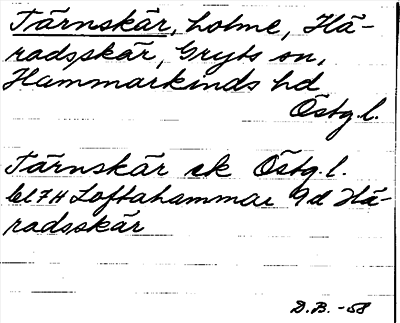 Tärnskär, holme, Hä-
radsskär, Gryts sn,
Hammarkinds hd
Östg.l.
Tärnskär ek Östg.l.
bl 7H Loftahammar 9d Hä-
radsskär
D.B. -58